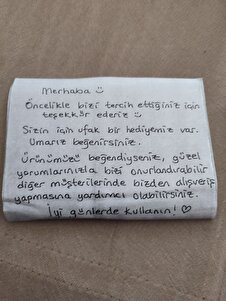 Merhaba
Öncelikle bizi tercih ettiğiniz için
teşekkür ederiz
Sizin için ufak bir hediyemiz var.
Umarız beğenirsiniz.
Ürünümüzü beğendiyseniz, güzel
yorumlarınızla bizi onurlandırabilir
diğer müşterilerinde bizden alışveriş
yapmasına yardımcı olabilirsiniz.
İyi günlerde kullanın! ♡